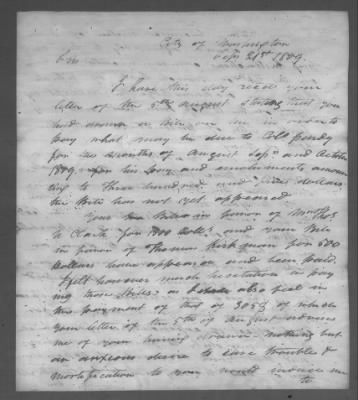 City of Washington
Sept 21st 1809.
Sir
I have this day recd your
letter of the 5th August stating that you
had drawn a Bill on me in order to
pay what may be due to Col
for his months of August Sepr and October
1809, for his pay and emoluments amoun
ting to three hundred and dollars.
the Bill has not yet appeared
Your Bills in favor of
Clark for 1800 dolls, and your Bill
in favor of Thomas Kirkman for 500
dollars have appeared and been paid.
I felt however much hesitation in pay
ing those Bills, as I also feel in
the payment of that of 305$ of which
your letter of the 5th of August advises
me of your having drawn. nothing but
an anxious desire to save trouble &
mortification to you would induce me
to